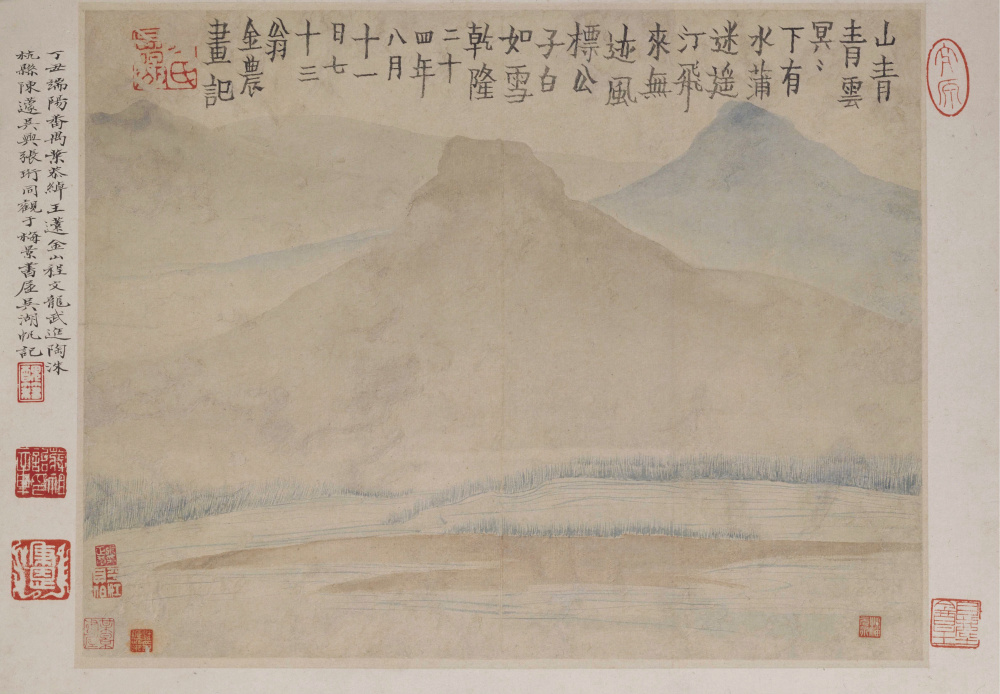 山青
青雲
冥〻
下有
水蒲
迷遥
汀飛
來無
迹風
標公
子白
如雪
乾隆
二十
四年
八月
十一
日七
十三
翁
金農
畫記
丁丑端陽番禺葉恭綽王薳金山程文龍武進陶洙
杭縣陳吳興張珩同觀于梅景書屋吳湖帆記